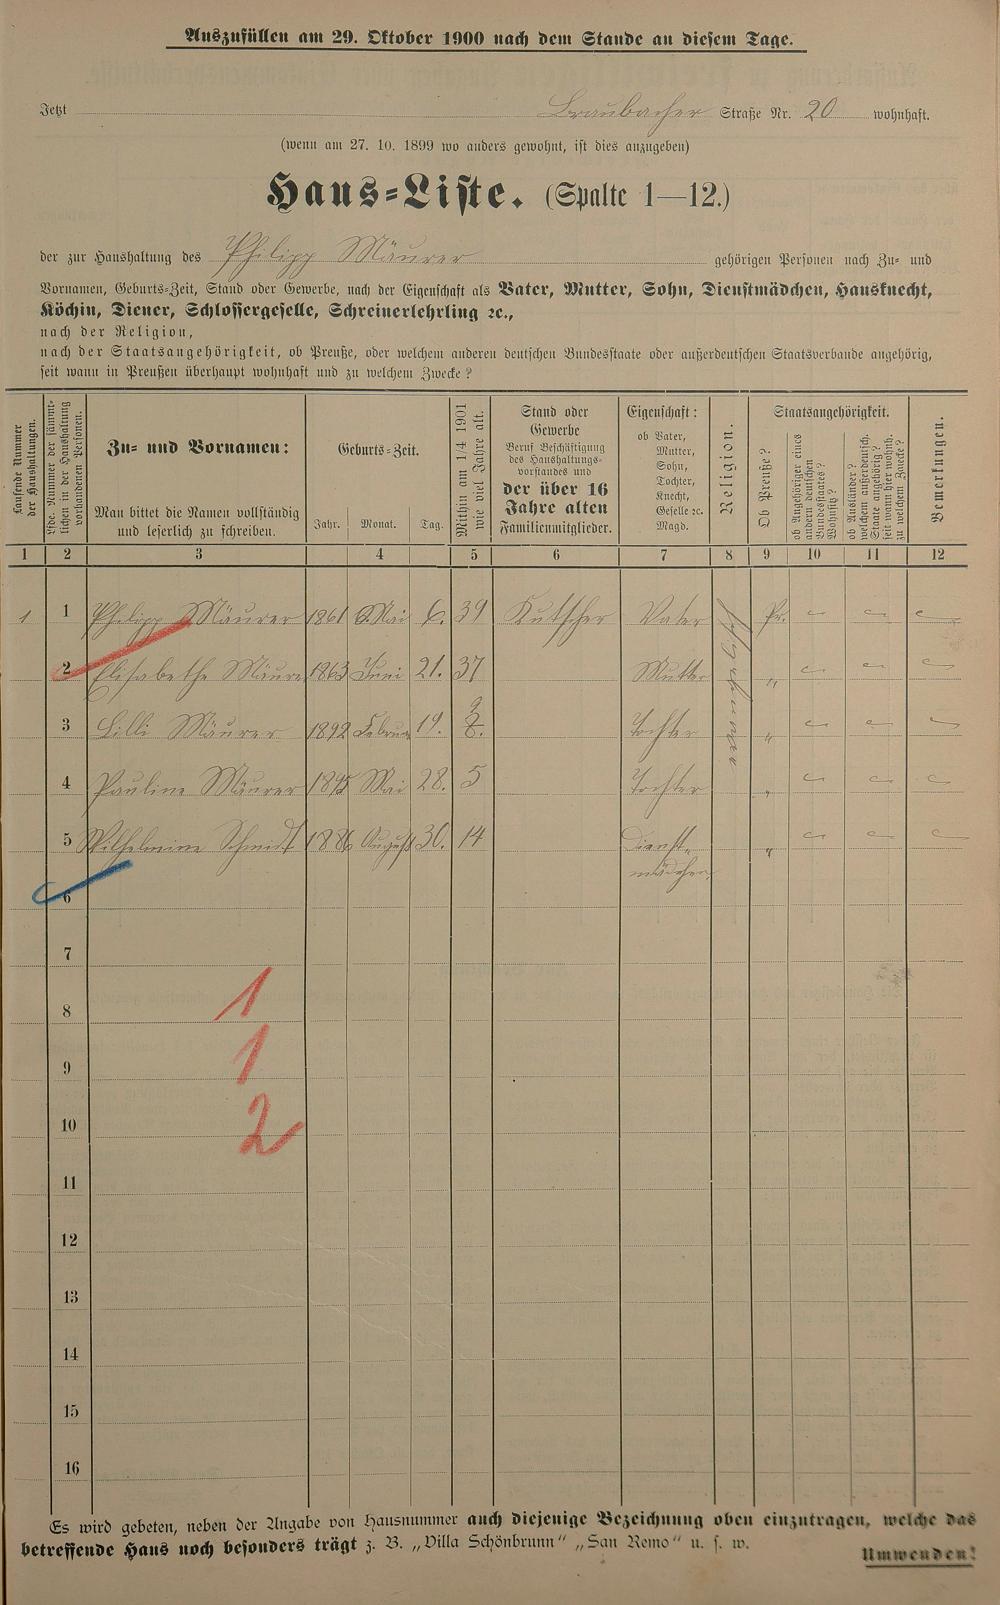 Auszufüllen am 29. Oktober 1900 nach dem Stande an diesem Tage.
Jetzt Braubacher Straße Nr. 20 wohnhaft.
(wenn am 27. 10. 1899 wo anders gewohnt, ist dies anzugeben)
Haus=Liste. (Spalte 1—12.)
der zur Haushaltung des Philipp Mäurer gehörigen Personen nach Zu= und
Vornamen, Geburts=Zeit, Stand oder Gewerbe, nach der Eigenschaft als Vater, Mutter, Sohn, Dienstmädchen, Hausknecht,
Köchin, Diener, Schlossergeselle, Schreinerlehrling ꝛc.,
nach der Religion,
nach der Staatsangehörigkeit, ob Preuße, oder welchem anderen deutschen Bundesstaate oder außerdeutschen Staatsverbande angehörig,
seit wann in Preußen überhaupt wohnhaft und zu welchem Zwecke?
Laufende Nummer
der Haushaltungen.
Lfde. Nummer der sämmt=
lichen in der Haushaltung
vorhandenen Personen.
Zu= und Vornamen:
Man bittet die Namen vollständig
und leserlich zu schreiben.
Geburts=Zeit.
Jahr. Monat. Tag.
Mithin am 1/4 1901
wie viel Jahre alt.
Stand oder
Gewerbe
Beruf Beschäftigung
des Haushaltungs=
vorstandes und
der über 16
Jahre alten
Familienmitglieder.
Eigenschaft:
ob Vater,
Mutter,
Sohn,
Tochter,
Knecht,
Geselle ꝛc.
Magd.
Religion.
Staatsangehörigkeit.
Ob Preuße?
ob Angehöriger eines
andern deutschen
Bundesstaates?
Wohnsitz?
ob Ausländer?
welchem außerdeutsch.
Staate angehörig?
seit wann hier wohnh.
zu welchem Zwecke?
Bemerkungen.
1 2 3 4 5 6 7 8 9 10 11 12
1 1 Philipp Mäurer 1861 Mai 6. 39 Kutscher Vater Pr.
2 Elisabethe Mäurer 1863 Juni 21. 37 Mutter "
3 Lilli Mäurer 1892 Februar 19. 9 Tochter "
4 Pauline Mäurer 1895 Mai 28. 5 Tochter "
5 Wilhelmine Schmidt 1886 August 30. 14 Dienst=
mädchen "
6
7
8
1
9
1
10
2
11
12
13
14
15
16
Es wird gebeten, neben der Angabe von Hausnummer auch diejenige Bezeichnung oben einzutragen, welche das
betreffende Haus noch besonders trägt z. B. „Villa Schönbrunn" „San Remo" u. s. w.
Umwenden!